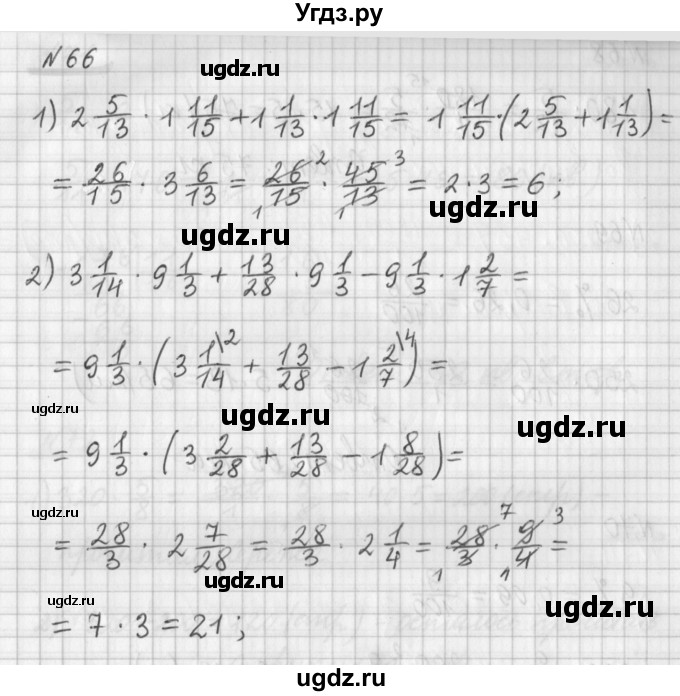 Угдз.ру
№66
1) 2 5/13 · 1 11/15 + 1 1/13 · 1 11/15 = 1 11/15 · (2 5/13 + 1 1/13) =
ugdz.ru
= 26/15 · 3 6/13 = 26/15 2 1 · 45/13 3 1 = 2 · 3 = 6;
ugdz.ru
ugdz.ru
2) 3 1/14 · 9 1/3 + 13/28 · 9 1/3 − 9 1/3 · 1 2/7 =
= 9 1/3 · (3 1\2/14 + 13/28 − 1 2\4/7) =
ugdz.ru
ugdz.ru
ugdz.ru
= 9 1/3 · (3 2/28 + 13/28 − 1 8/28) =
ugdz.ru
= 28/3 · 2 7/28 = 28/3 · 2 1/4 = 28/3 7 1 · 9/4 3 1 =
ugdz.ru
ugdz.ru
ugdz.ru
= 7 · 3 = 21;
ugdz.ru
ugdz.ru